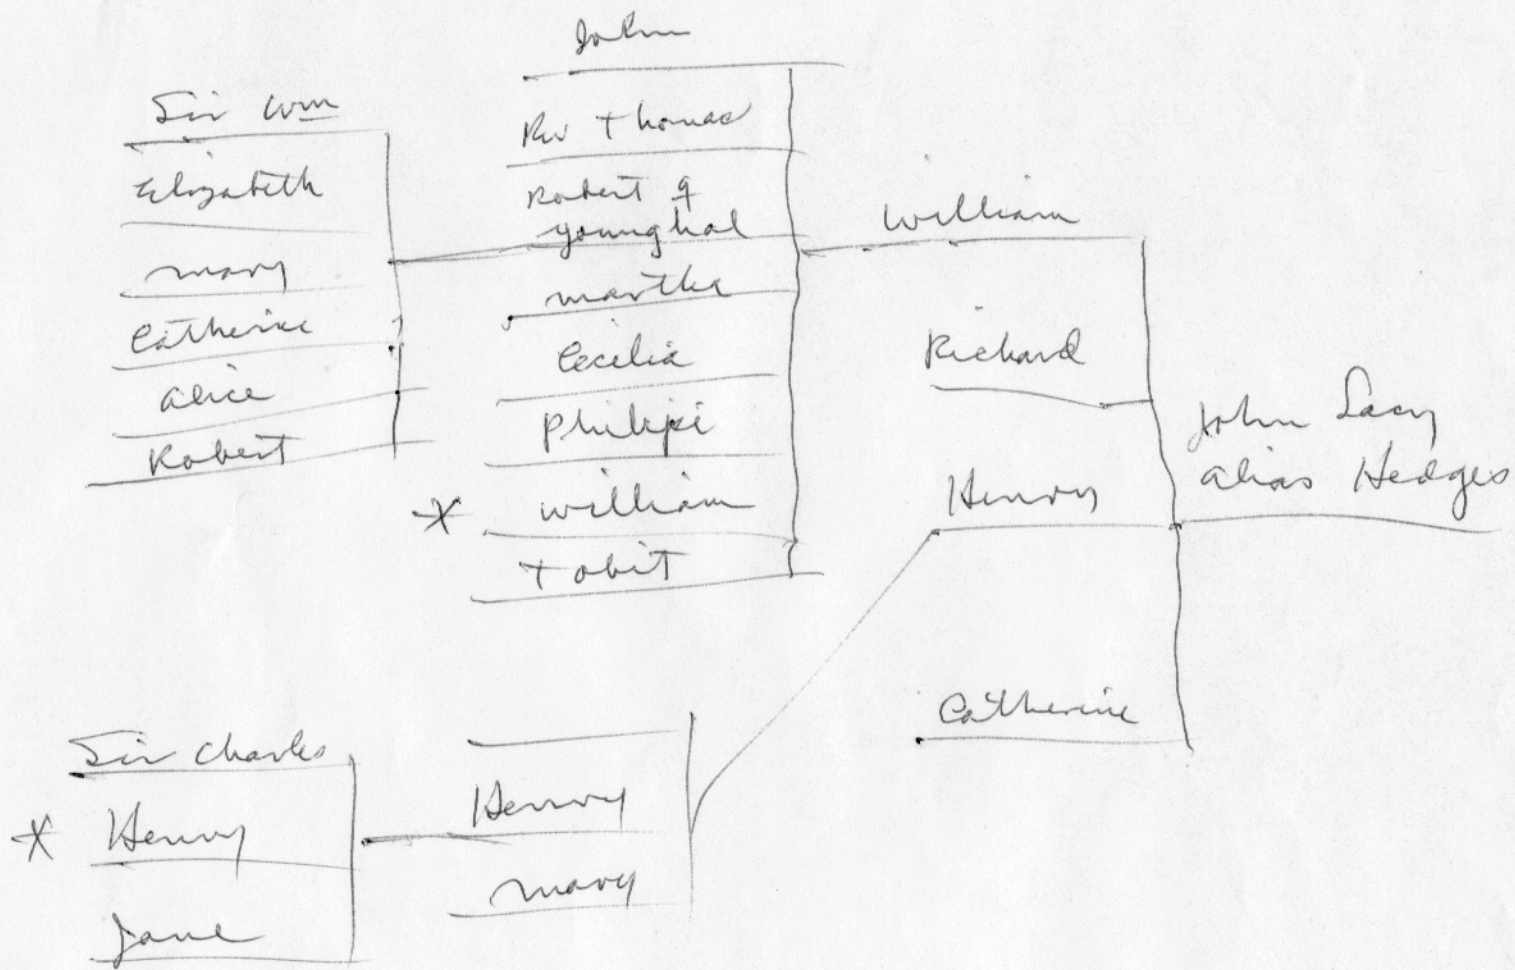 John
Sir Wm
Elizabeth
Mary
Catherine
Alice
Robert
Rev Thomas
Robert of
Younghal
Martha
Cecilia
Philipi
* William
Tobit
William
Richard
Henry
Catherine
John Lacy
alias Hedges
Sir Charles
* Henry
Jane
Henry
Mary